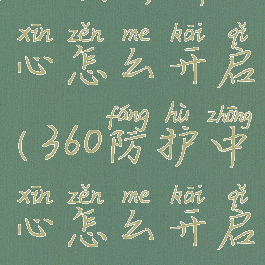 xīn zěn me kāi qǐ
心怎么开启
fáng hù zhōng
(360防护中
xīn zěn me kāi qǐ
心怎么开启